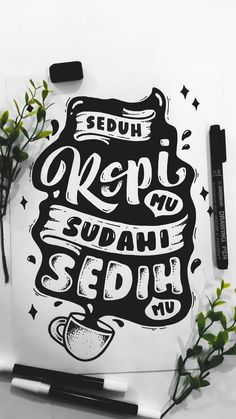 SEDUH
Kopi
MU
SUDAHI
SEDIH
MU
DRAWING PEN